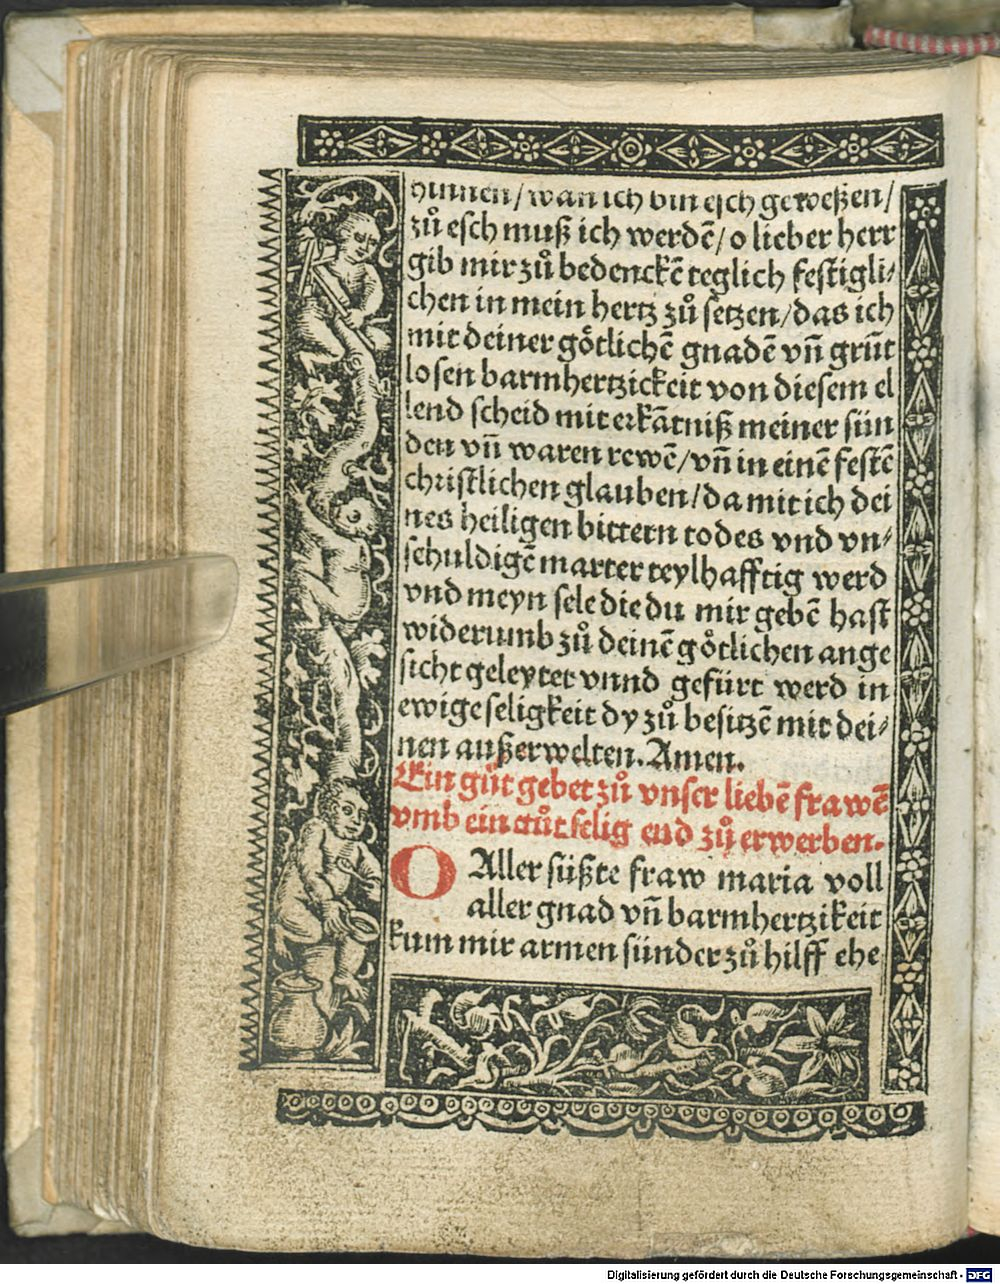 hinnen/wan ich bin esch geweßen/
zů esch muß ich werdē/o lieber herr
gib mir zů bedenckē teglich festigli⸗
chen in mein hertz zů setzen/das ich
mit deiner götlichē gnadē vñ grūt
losen barmhertzickeit von diesem el
lend scheid mit erkātniß meiner sün
den vñ waren rewē/vñ in einē festē
christlichen glauben/da mit ich dei
nes heiligen bittern todes vnd vn⸗
schuldigē marter teylhafftig werd
vnd meyn sele die du mir gebē hast
widerumb zů deinē götlichen ange
sicht geleytet vnnd gefürt werd in
ewige seligkeit dy zů besitzē mit dei⸗
nen außerwelten. Amen.
Ein gůt gebet zů vnser liebē frawē
vmb ein gůt selig end zů erwerben.
O Aller süßte fraw maria voll
aller gnad vñ barmhertzikeit
kum mir armen sünder zů hilff ehe
Digitalisierung gefördert durch die Deutsche Forschungsgemeinschaft - DFG